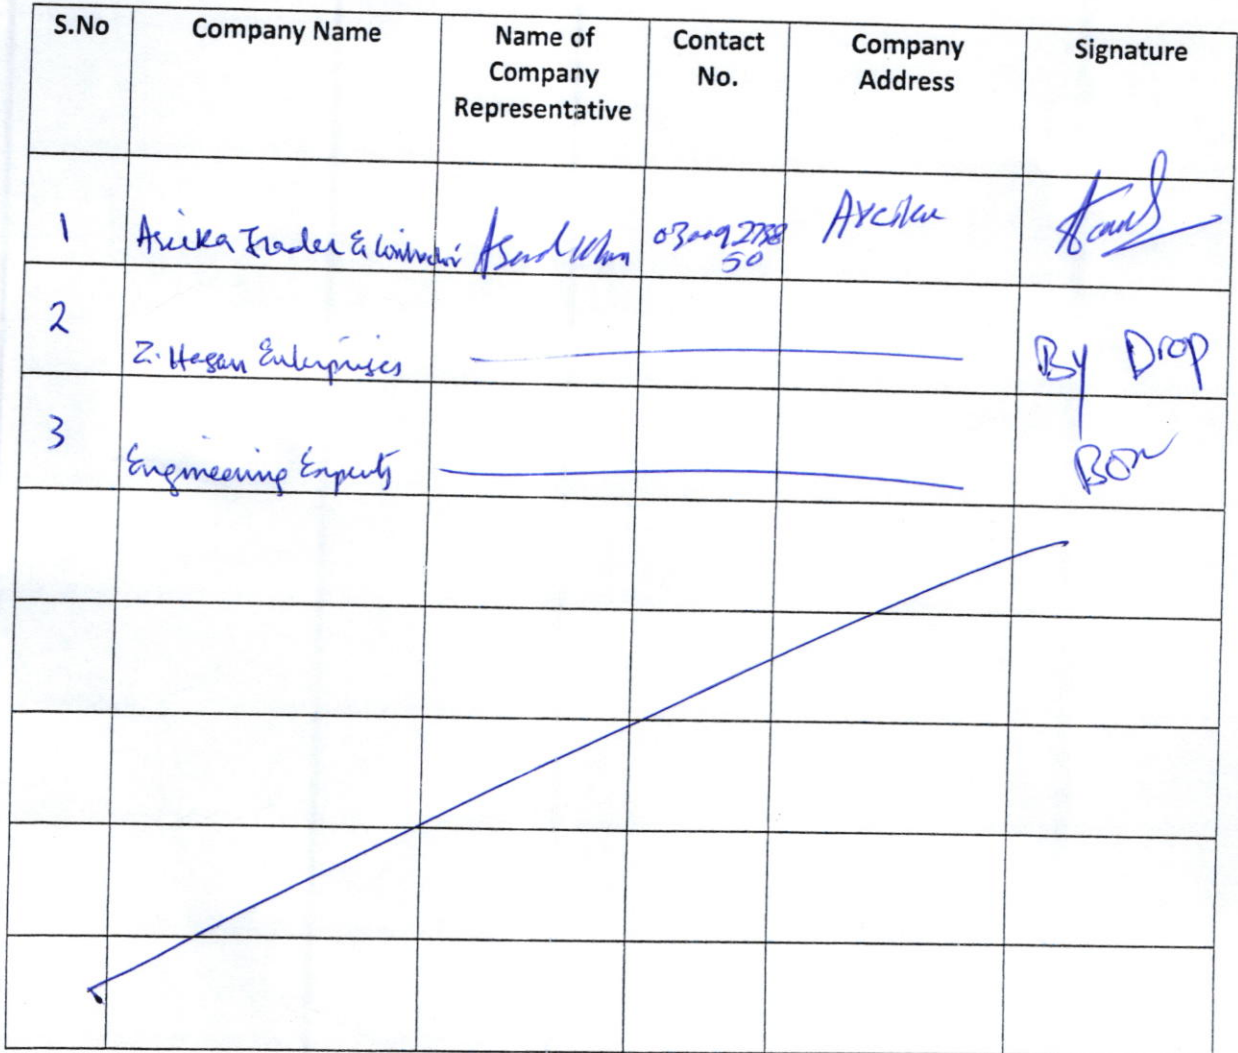 S.No Company Name Name of Company Representative Contact No. Company Address Signature
1 Trader & 03009278850
2 Z. Hasan Enterprises By Drop
3 Engineering Experts Box